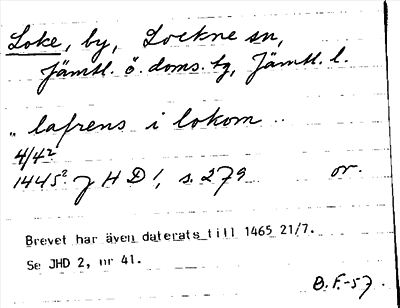 Loke, by, Lockne sn,
Jämtl. ö. doms. tg, Jämtl. l.
„ lafrens i lokom ..
4/4 2
1445? JHD 1, s. 279 or.
Brevet har även daterats till 1465 21/7.
Se JHD 2, nr 41.
B.F.-57.